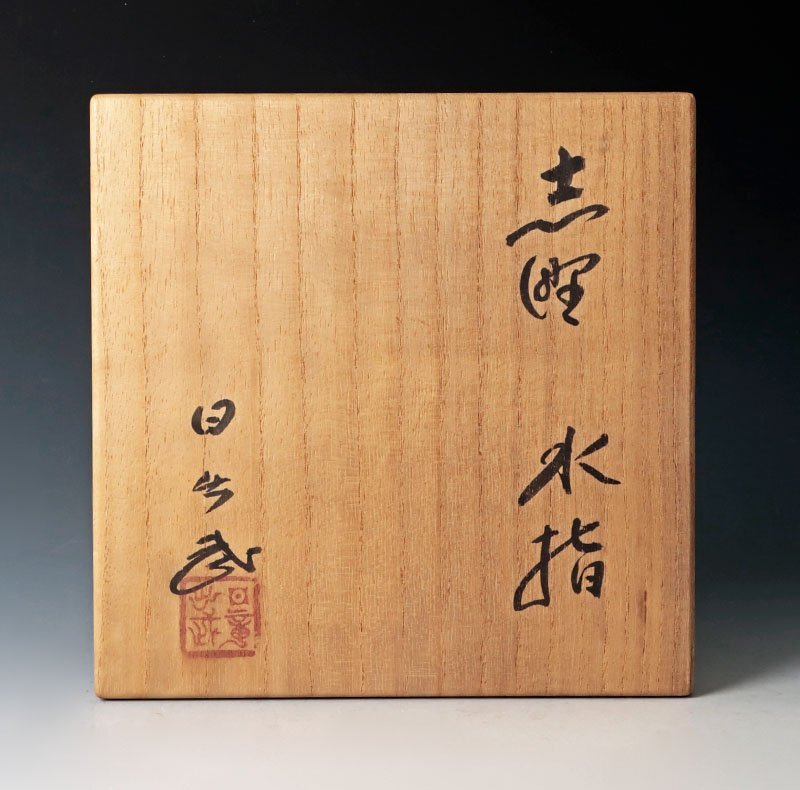 志野
水指
日出武